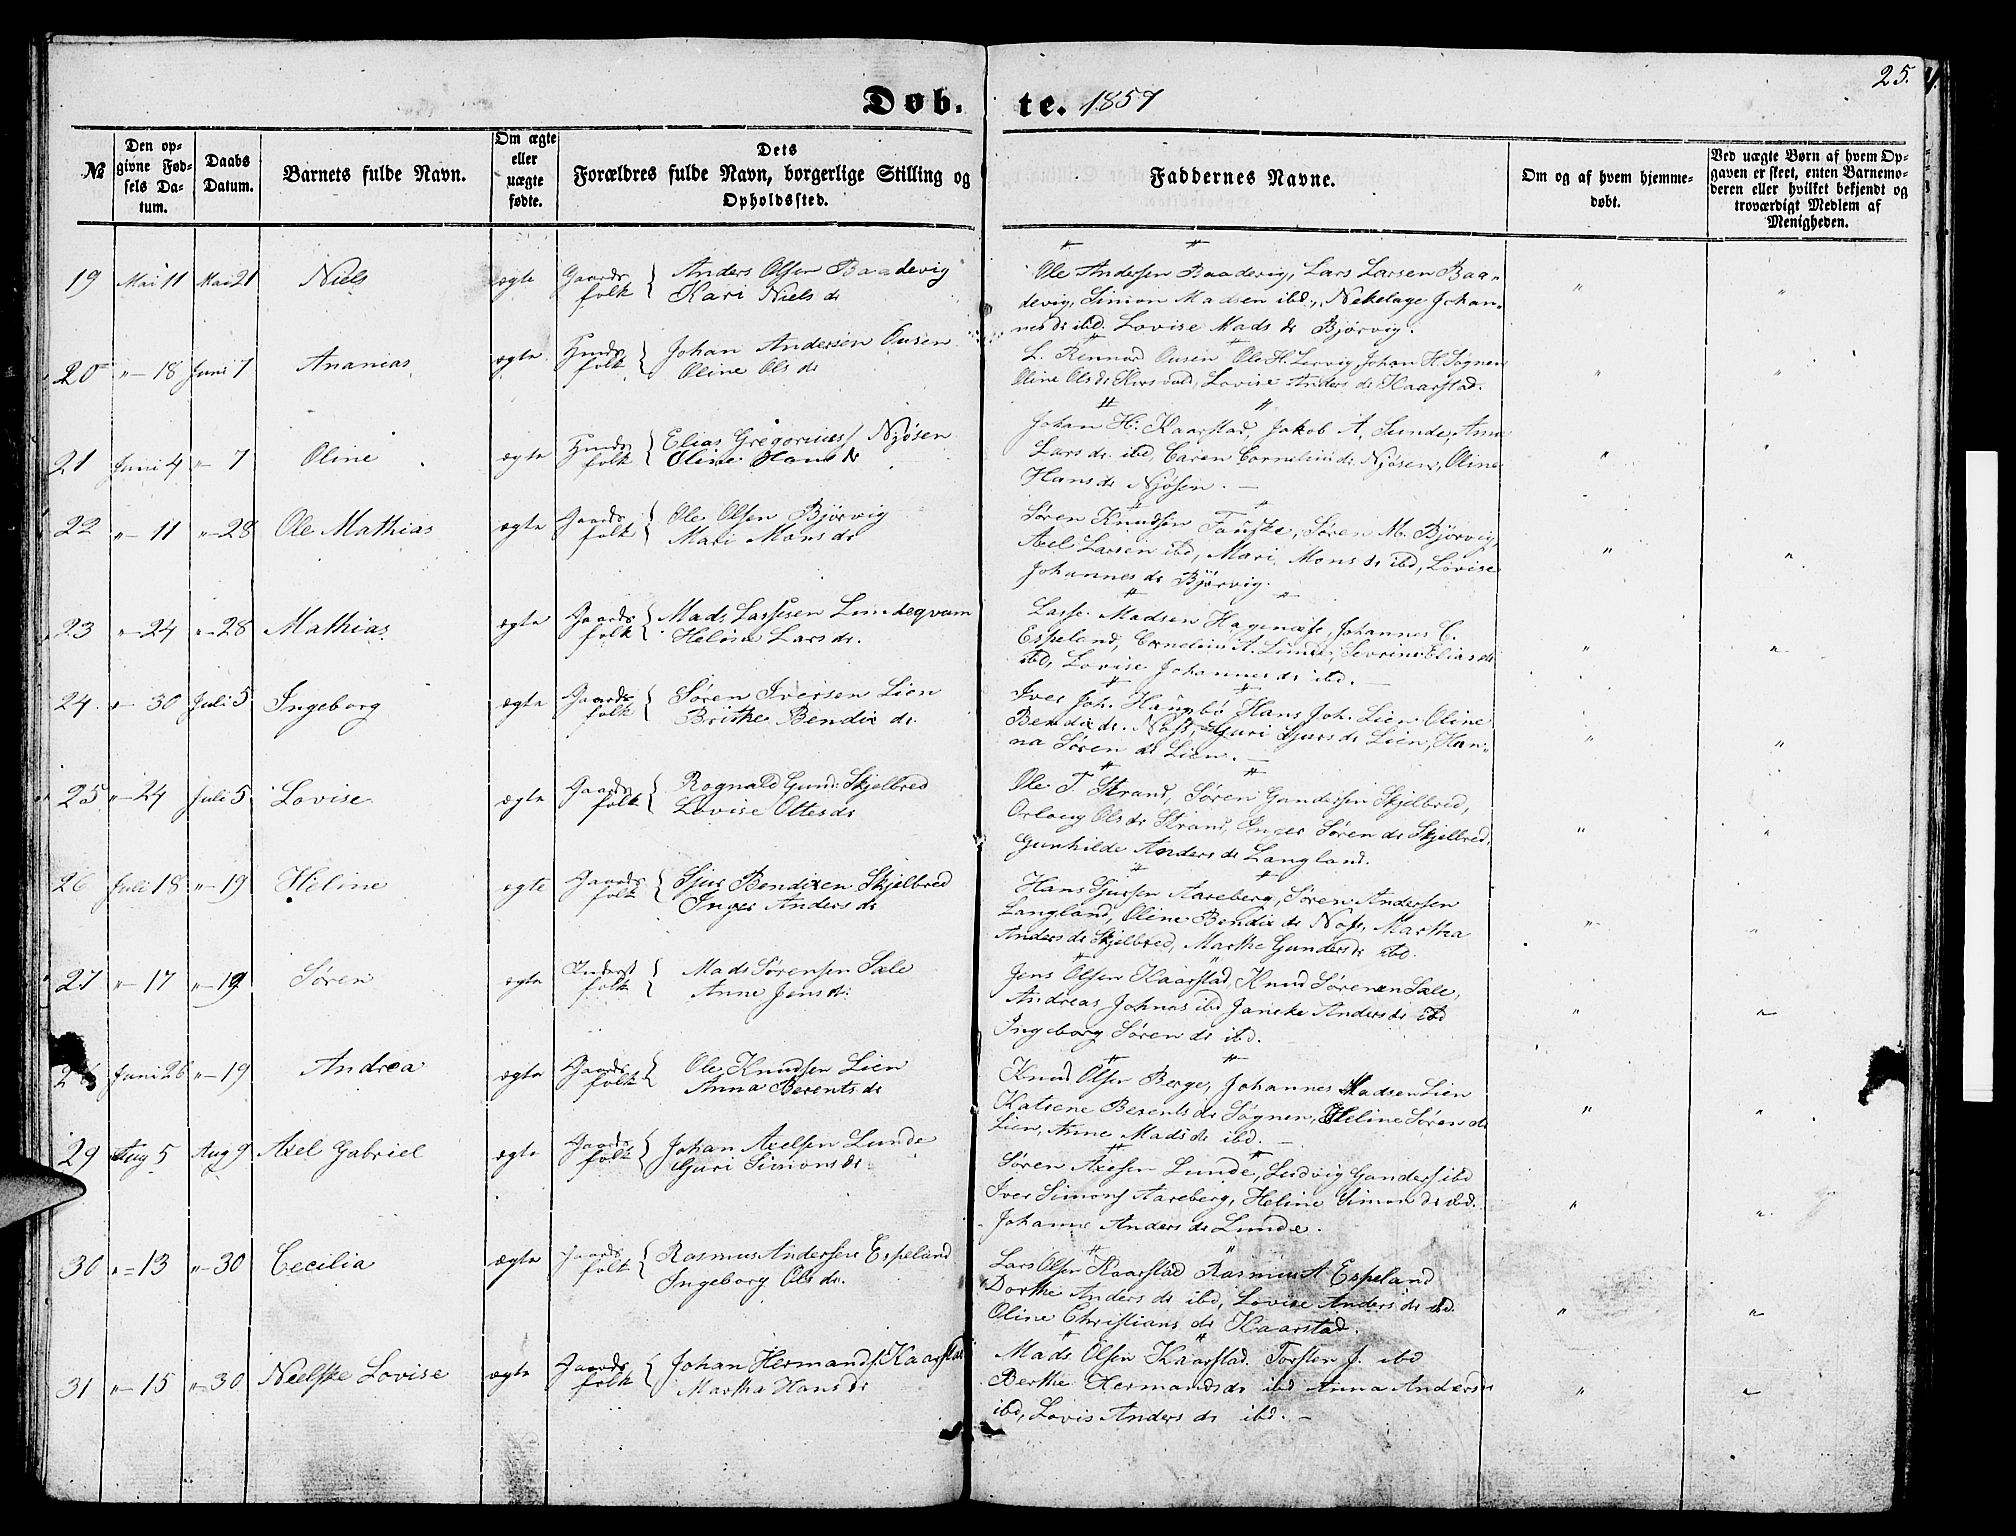 25.
Døb. te. 1857
№
Den op-
givne Fød-
sels Da-
tum.
Daabs
Datum.
Barnets fulde Navn.
Om ægte
eller
uægte
fødte.
Dets
Forældres fulde Navn, borgerlige Stilling og
Opholdssted.
Faddernes Navne.
Om og af hvem hjemme-
døbt.
Ved uægte Børn af hvem Op-
gaven er skeet, enten Barnemo-
deren eller hvilket bekjendt og
troværdigt Medlem af
Menigheden.
19 Mai 11 Mai 21 Niels ægte Gaards folk { Anders Olsen Baadevig
Kari Nielsdr
Ole Andersen Baadevig, Lars Larsen Baa-
devig, Simon Madsen ibd., Nekelage Johan-
nesdr ibd. Lovise Madsdr Bjørvig.
20 " 18 Juni 7 Ananias ægte folk { Johan Andersen Ousen
Oline Olsdr
L. Rennord Ousen Ole H. Johan H. Søgnen
Oline Olsdr Lovise Andersdr Kaarstad.
21 Juni 4 " 7 Oline ægte folk { Elias Gregoriuss Njøsen
Oline Hansdr
Johan H. Kaarstad, Jakob A. Lunde, Anna
Larsdr ibd, Caren Corneliusdr Njøsen, Oline
Hansdr Njøsen. —
22 " 11 " 28 Ole Mathias ægte Gaards folk { Ole Olsen Bjørvig
Mari Monsdr
Søren Knudsen Fauske, Søren M. Bjørvig,
Axel Larsen ibd, Mari Monsdr ibd, Lovise
Johannesdr Bjørvig.
23 " 24 " 28 Mathias ægte Gaards folk { Mads Lassesen Lundeqvam
Heløne Larsdr.
Lasse Madsen Hagenæse, Johannes C.
Espeland, Cornelius A. Lunde, Sevrine Eliasdr
ibd, Lovise Johannesdr ibd. —
24. " 30 Juli 5 Ingeborg ægte Gaards folk { Søren Iversen Lien
Brithe Bendixdr.
Iver Joh. Haugbø Hans Joh. Lien Oline
Bendixdr. Noss, Guri Sjursdr Lien, Han-
na Sørendr Lien. —
25 " 24 Juli 5 Lovise ægte Gaards folk { Rognald Gund: Skjelbred
Lovise Oltesdr
Ole T Strand, Søren Gundersen Skjelbred,
Orloug Olsdr Strand, Inger Sørendr Skjelbred,
Gunhilde Andersdr Langland.
26 Juli 18 " 19 Heline ægte Gaards folk { Sjur Bendixen Skjelbred
Inger Andersdr
Hans Sjursen Aareberg, Søren Andersen
Langland, Oline Bendixdr Noss, Martha
Andersdr Skjelbred, Marthe Gundersdr ibd.
27 " 17 " 19 Søren ægte Inderst folk { Mads Sørensen Sæle
Anne Jensdr.
Jens Olsen Kaarstad, Knud Sørensen Sæle,
Andreas Johnas ibd Janeke Andersdr ibd
Ingeborg Sørendr ibd.
Juni 26 " 19 Andrea ægte Gaards folk { Ole Knudsen Lien
Anna Berentsdr
Knud Olsen Berge, Johannes Madsen Lien
Katrene Berentsdr Søgnen, Heline Sørendr
Lien, Anne Madsdr ibd. —
29 Aug 5 Aug 9 Axel Gabriel ægte Gaards folk { Johan Axelsen Lunde
Guri Simonsdr.
Søren Axelsen Lunde, Ludvig Ganders ibd
Iver Simons Aareberg, Heline Simonsdr ibd.
Johanne Andersdr Lunde.
30 " 13 " 30 Cecilia ægte Gaards folk { Rasmus Andersen Espeland
Ingeborg Olsdr.
Lars Olsen Kaarstad Rasmus A Espeland
Dorthe Andersdr ibd, Lovise Andersdr ibd.
Oline Christiansdr Kaarstad.
31 " 15 " 30 Neelske Lovise ægte Gaards folk { Johan Hermands. Kaarstad
Martha Hansdr
Mads Olsen Kaarstad. Torsten J. ibd
Berthe Hermandsdr ibd Anna Andersdr
ibd, Lovis Andersdr ibd. —